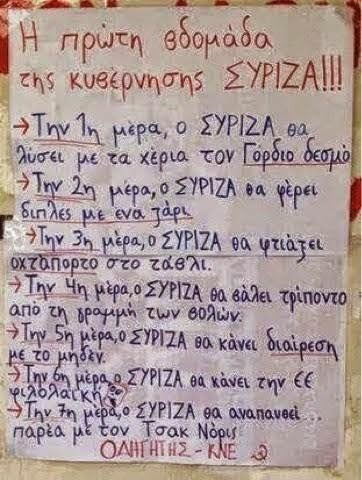 Η πρώτη εβδομάδα
της κυβέρνησης ΣΥΡΙΖΑ!!!
→ Την 1η μέρα, ο ΣΥΡΙΖΑ θα
λύσει με τα χέρια τον Γόρδιο δεσμό
→ Την 2η μέρα, ο ΣΥΡΙΖΑ θα φέρει
διπλές με ενα ζάρι
→ Την 3η μέρα, ο ΣΥΡΙΖΑ θα φτιάξει
οχτάπορτο στο τάβλι.
→ Την 4η μέρα, ο ΣΥΡΙΖΑ θα βάλει τρίποντο
από τη γραμμή των βολών.
→ Την 5η μέρα, ο ΣΥΡΙΖΑ θα κάνει διαίρεση
με το μηδέν.
→ Την 6η μέρα, ο ΣΥΡΙΖΑ θα κάνει την ΕΕ
φιλολαϊκή
→ Την 7η μέρα, ο ΣΥΡΙΖΑ θα αναπαυθεί...
παρέα με τον Τσακ Νόρις
ΟΔΗΓΗΤΗΣ - ΚΝΕ